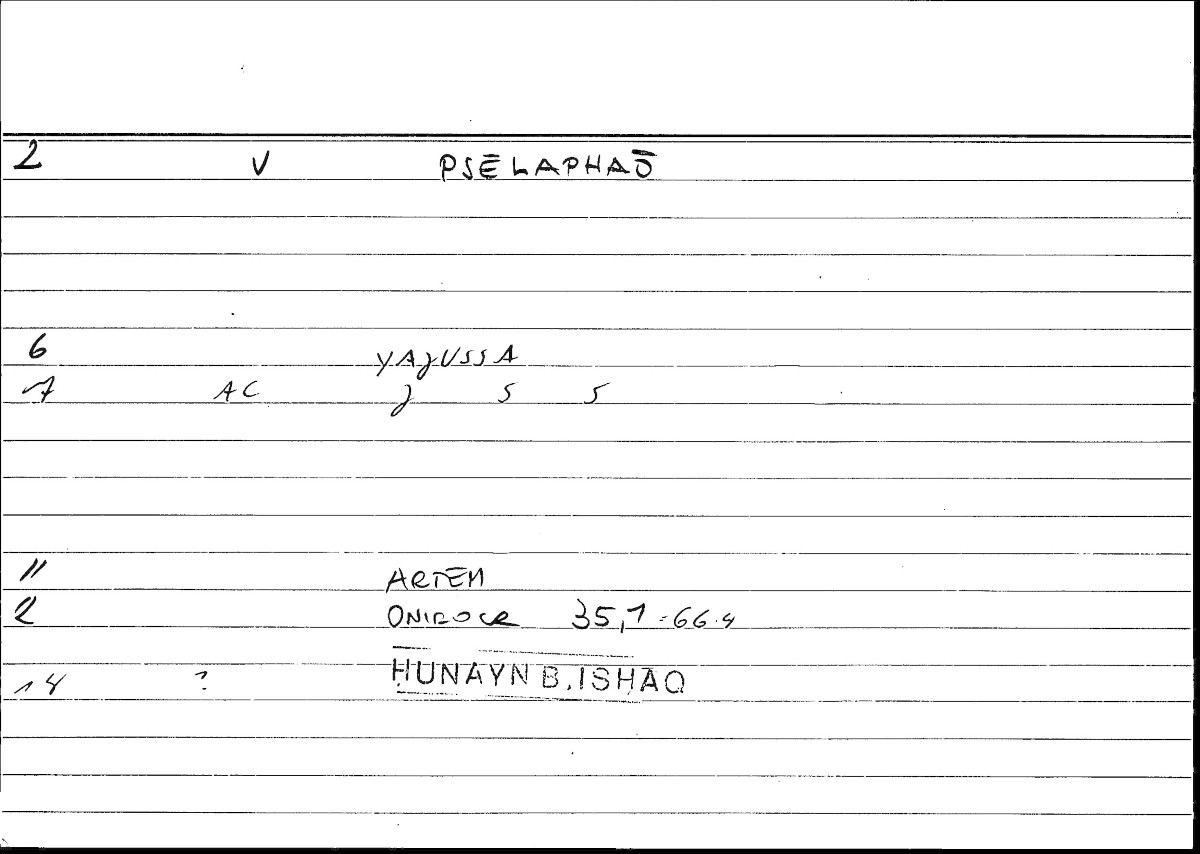 2 V PSĒLAPHAŌ
6 YAJUSSA
7 AC J S S
11 ARTEM
2 ONIROCR 35,1 - 66.4
14 ? ḤUNAYN B. ISḤAQ